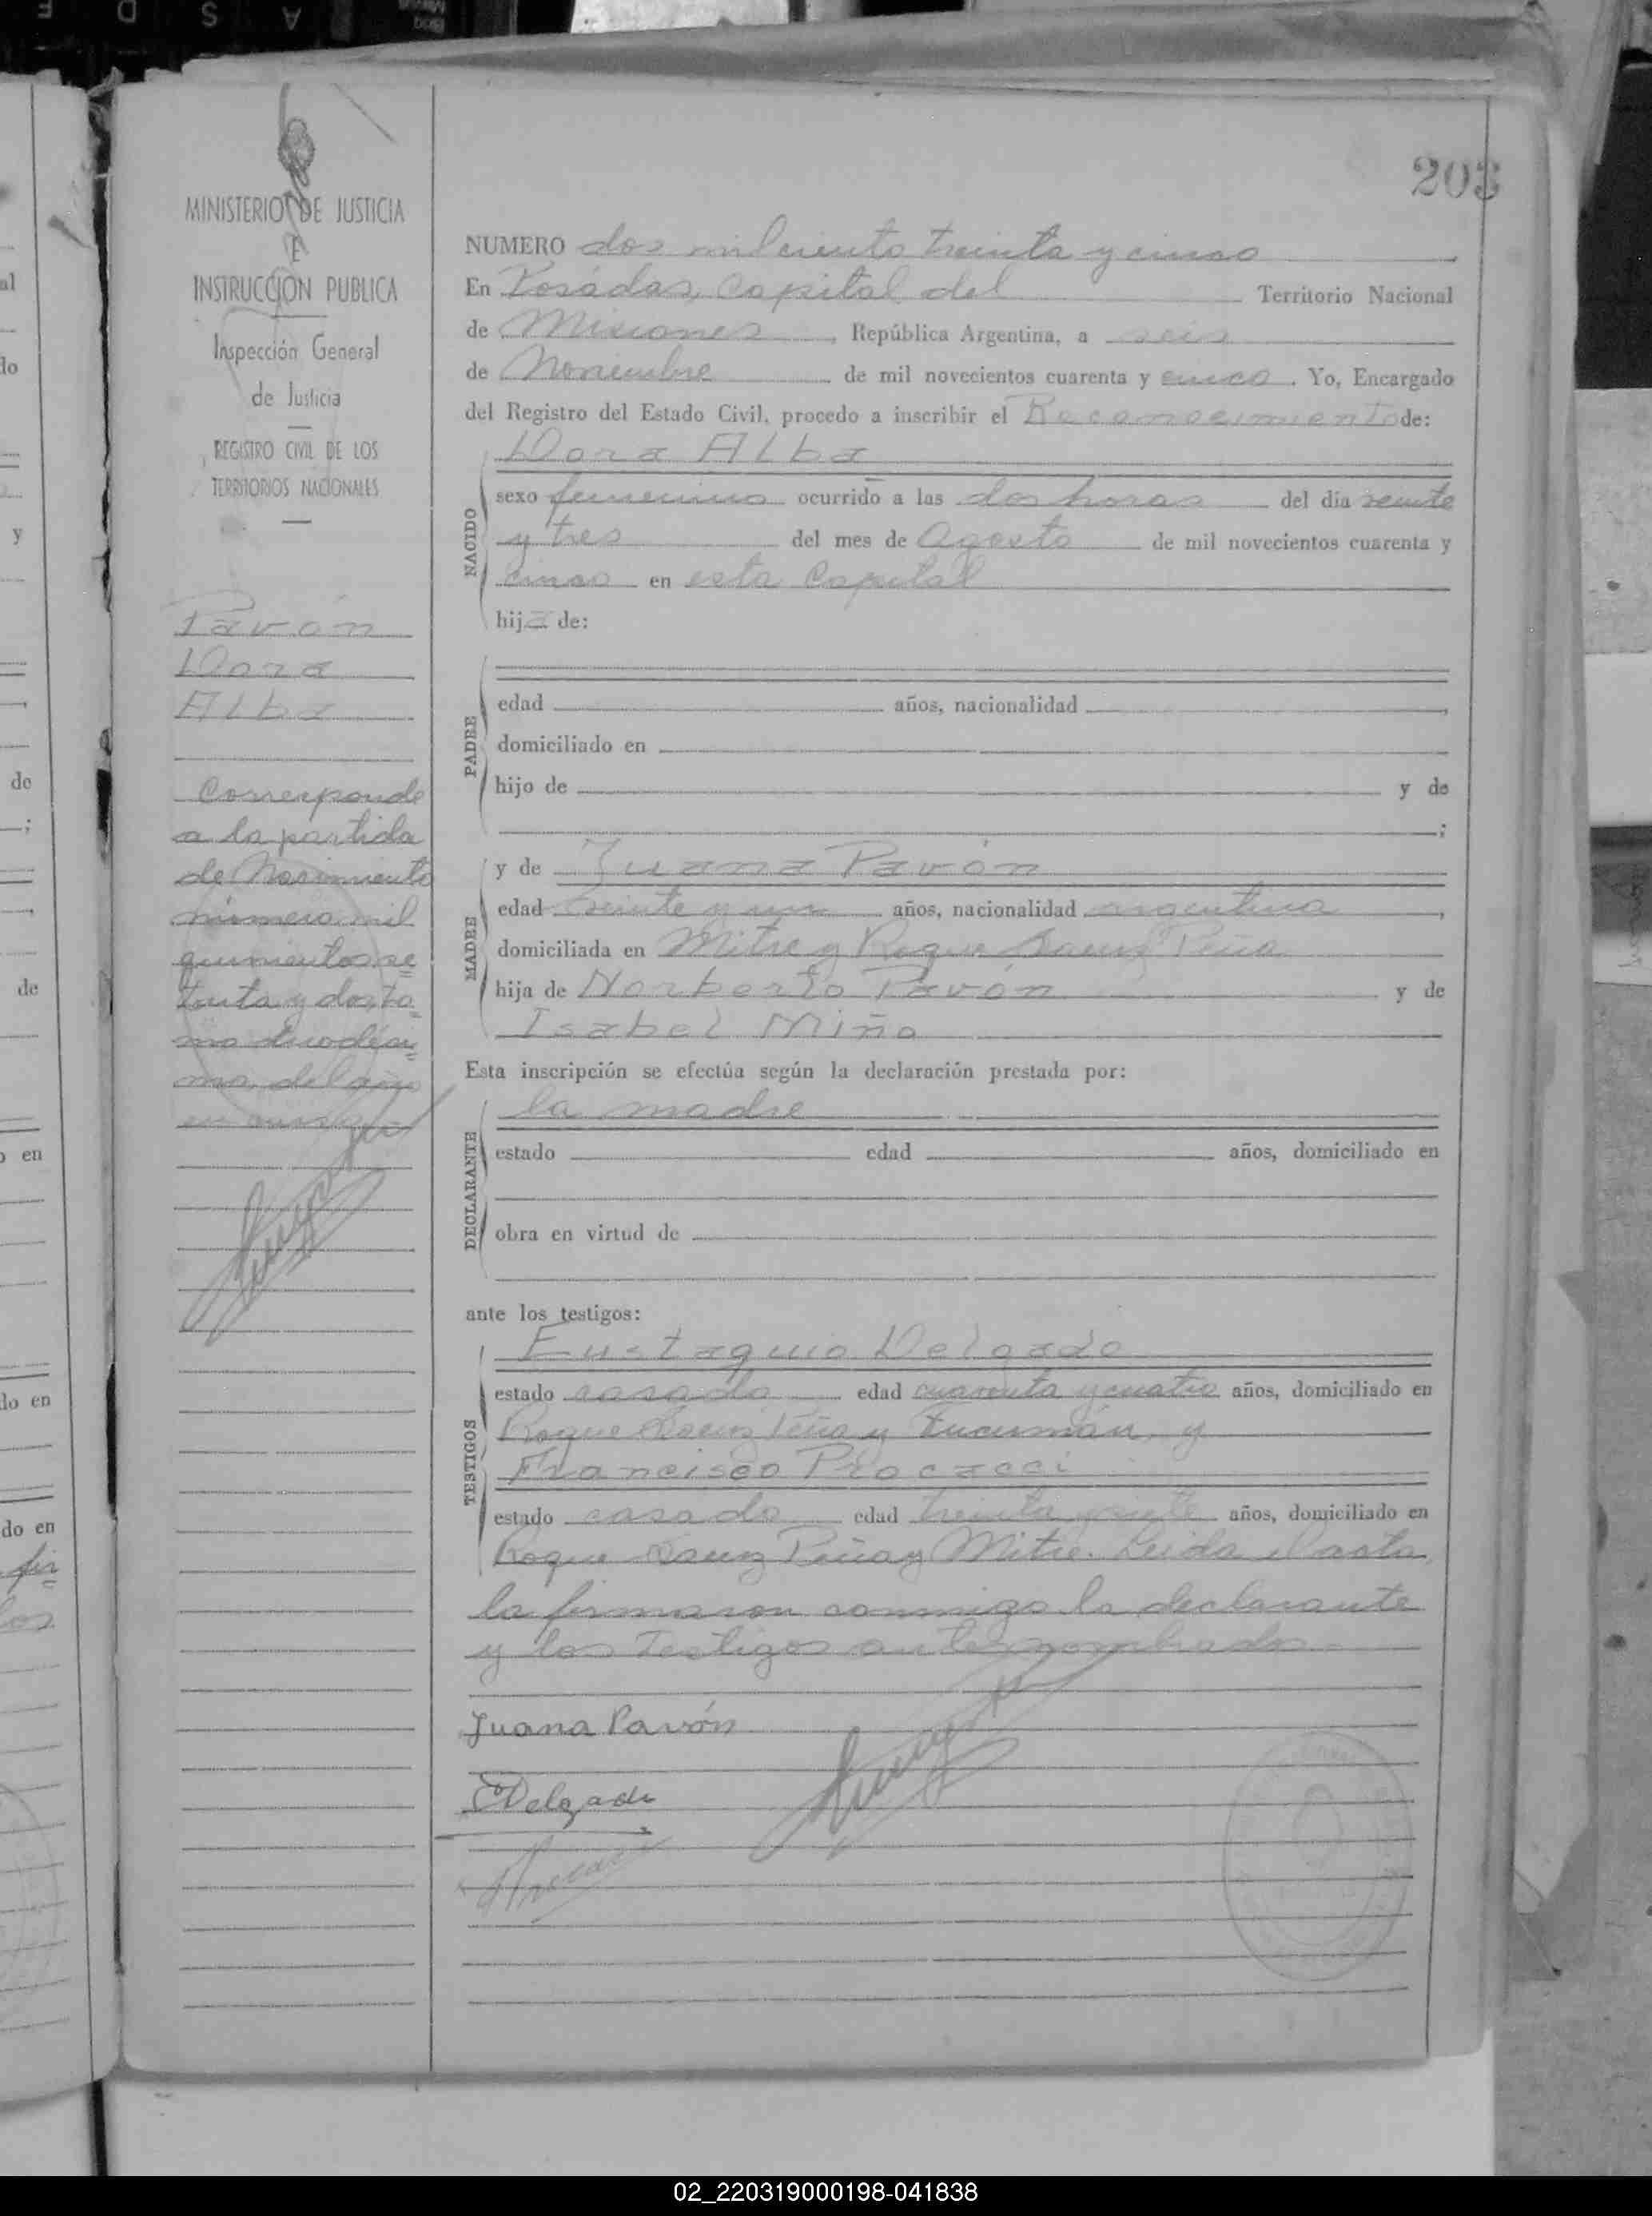 203
MINISTERIO DE JUSTICIA
E
INSTRUCCION PUBLICA
Inspección General
de Justicia
REGISTRO CIVIL DE LOS
TERRITORIOS NACIONALES
Pavón
Dora
Alba
Corresponde
a la partida
de Nacimiento
número mil
quinientos se
tenta y dos, to
mo duodéci
mo, del año
en curso
NUMERO dos mil ciento treinta y cinco
En Posadas, Capital del Territorio Nacional
de Misiones, República Argentina, a seis
de Noviembre de mil novecientos cuarenta y cinco. Yo, Encargado
del Registro del Estado Civil, procedo a inscribir el Reconocimiento de:
NACIDO
Dora Alba
sexo femenino ocurrido a las dos horas del día veinte
y tres del mes de Agosto de mil novecientos cuarenta y
cinco en esta Capital
hija de:
PADRE
edad años, nacionalidad
domiciliado en
hijo de y de
;
MADRE
y de Juana Pavón
edad veinte y un años, nacionalidad argentina,
domiciliada en Mitre y Roque Saenz Peña
hija de Norberto Pavón y de
Isabel Miño
Esta inscripción se efectúa según la declaración prestada por:
DECLARANTE
la madre
estado edad años, domiciliado en
obra en virtud de
ante los testigos:
TESTIGOS
Eustaquio Delgado
estado casado edad cuarenta y cuatro años, domiciliado en
Roque Saenz Peña y Tucumán, y
Francisco Procacci
estado casado edad treinta y siete años, domiciliado en
Roque Saenz Peña y Mitre. Leida el acta,
la firmaron conmigo la declarante
y los testigos antes nombrados.
Juana Pavón
EDelgado
02_220319000198-041838